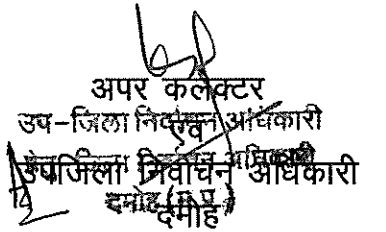 अपर कलेक्टर
उप-जिला निर्वाचन अधिकारी
एवं
उपजिला निर्वाचन अधिकारी
दमोह (म.प्र.)
दमोह